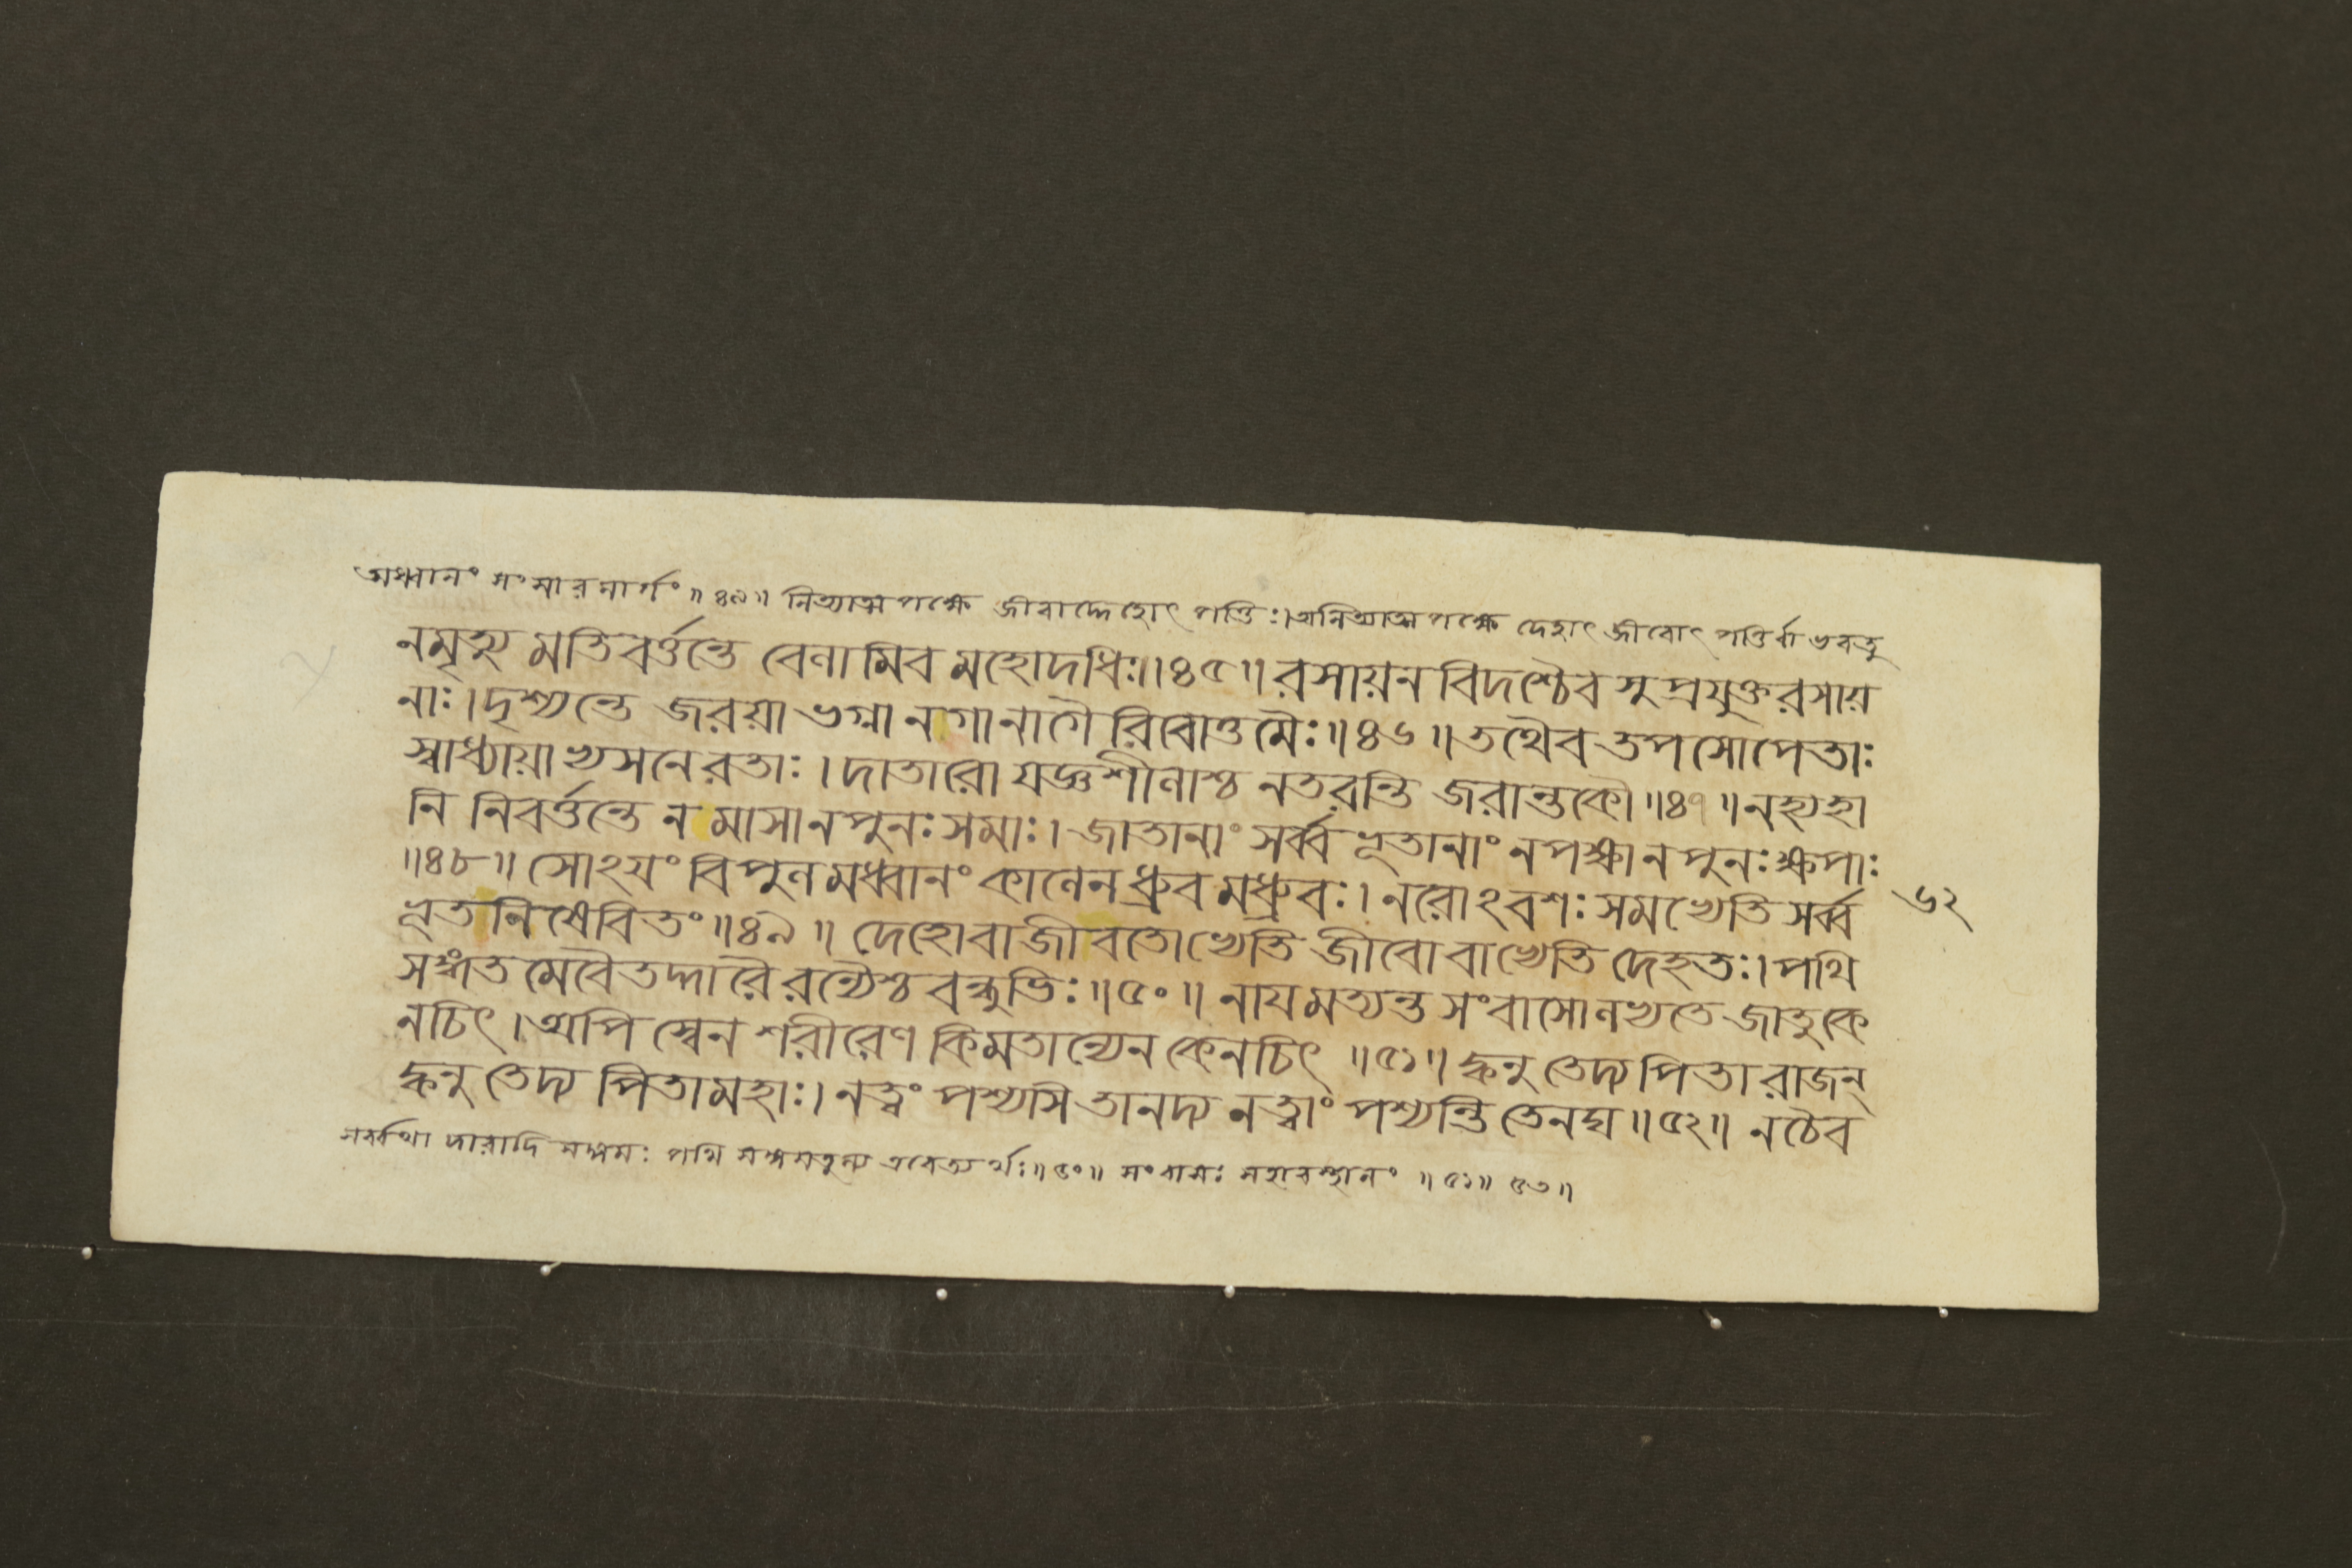 অধ্বানং সংসারমার্গং ॥ ৪৯ ॥ নিত্যাত্মপক্ষে জীবাদ্দেহোৎপত্তিঃ। অনিত্যাত্মপক্ষে দেহাৎ জীবোৎপত্তির্বা ভবতু
নমৃত্যু মতিবর্ত্তন্তে বেলামিব মহোদধিঃ॥ ৪৫ ॥ রসায়নবিদশ্চৈব সুপ্রযুক্তরসায়
নাঃ। দৃশ্যন্তে জরয়া ভগ্না নগানাগৈ রিবোত্তমৈঃ॥ ৪৬ ॥ তথৈব তপসোপেতাঃ
স্বাধ্যায়াভ্যসনেরতাঃ । দাতারো যজ্ঞশীলাশ্চ নতরন্তি জরান্তকৌ ॥ ৪৭ ॥ নহ্যহা
নি নিবর্ত্তন্তে ন মাসানপুনঃসমাঃ। জাতানাং সর্ব্বভূতানাং নপক্ষানপুনঃক্ষপাঃ
॥ ৪৮ ॥ সোঽয়ং বিপুলমধ্বানং কালেনধ্রুবমধ্রুবঃ। নরোঽবশঃ সমভ্যেতি সর্ব্ব
ভূতনিষেবিতং ॥ ৪৯ ॥ দেহোবাজীবতোভ্যেতি জীবোবাভ্যেতি দেহতঃ। পথি
সঙ্গতমেবৈতদ্দারৈরন্যৈশ্চ বন্ধুভিঃ॥ ৫০ ॥ নায়মত্যন্তসংবাসোলভ্যতে জাতুকে
নচিৎ । অপি স্বেনশরীরেণ কিমুতান্যেন কেনচিৎ ॥ ৫১ ॥ ক্বনুতেদ্য পিতা রাজন্
ক্বনুতেদ্য পিতামহাঃ। নত্বং পশ্যসি তানদ্য নত্বাং পশ্যন্তি তেনঘ॥ ৫২ ॥ নচৈব
সর্ব্বথা দারাদি সঙ্গমঃ পথি সঙ্গমতুল্য এবেত্যর্থঃ॥ ৫০ ॥ সংবাসঃ সহাবস্থানং ॥ ৫১ ॥ ৫৩ ॥
৬২